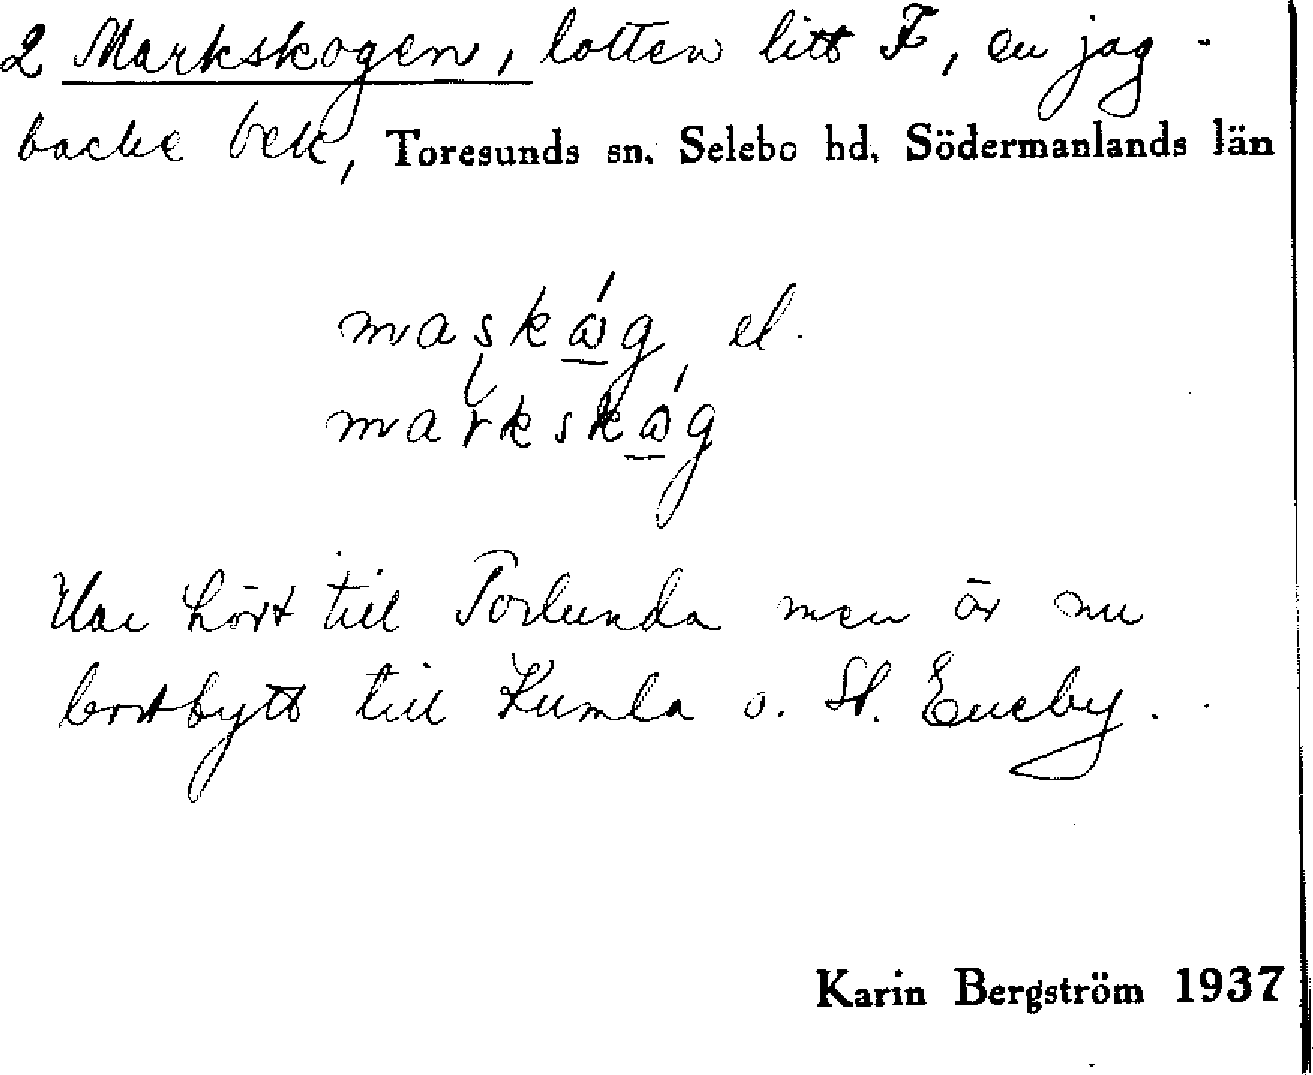 2 Markskogen, lotten litt F, en jag-
backe bek, Toresunds sn. Selebo hd. Södermanlands län
maskåg el.
markskåg
Har hört till Torlunda men är nu
bortbytt till Kumla o. St. Eneby.
Karin Bergström 1937